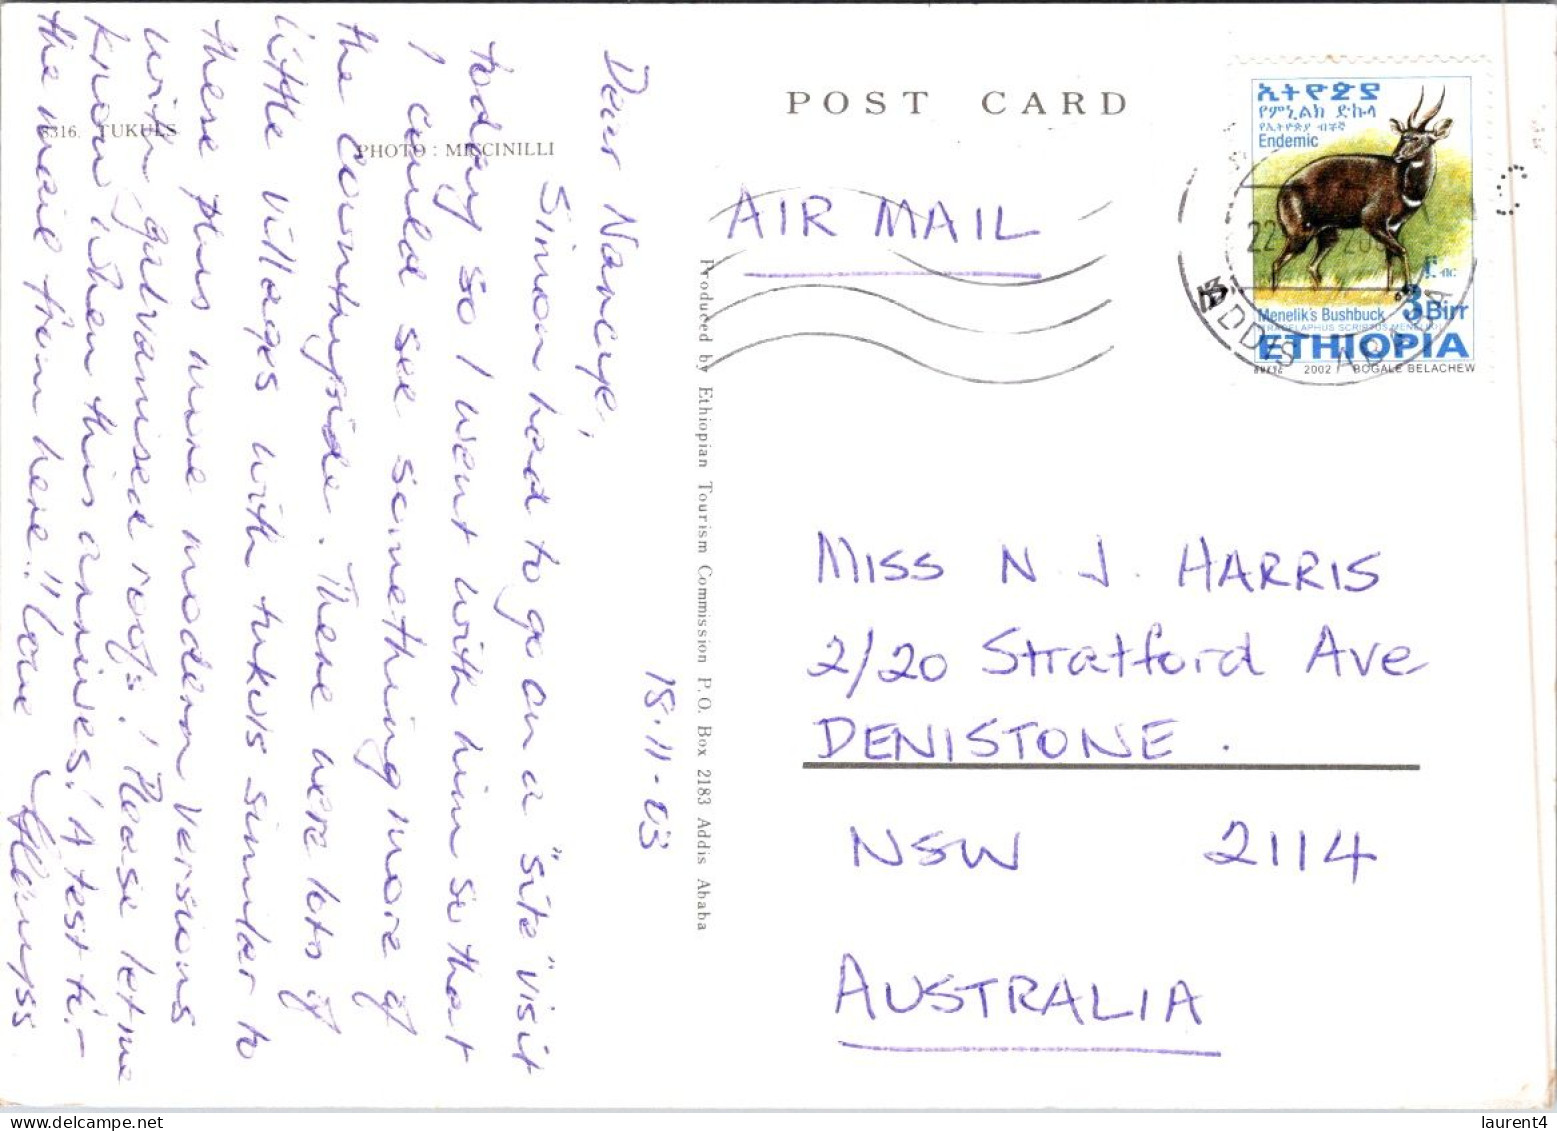 POST CARD
8316. TUKULS
PHOTO : MICCINILLI
Produced by Ethiopian Tourism Commission P.O. Box 2183 Addis Ababa
18.11.03
Dear Nancye,
Simon had to go on a "site" visit
today so I went with him so that
I could see something more of
the countryside. There were lots of
little villages with tukuls similar to
these plus more modern versions
with galvanised roofs! Please let me
know when this arrives! A test ti-
the mail from here!! Love
AIR MAIL
MISS N J. HARRIS
2/20 Stratford Ave
DENISTONE.
NSW 2114
AUSTRALIA
ኢትዮጵያ
የምኒልክ ድኩላ
የኢትዮጵያ ብቸኛ
Endemic
Menelik's Bushbuck
3 Birr
ብር
TRAGELAPHUS SCRIPTUS MENELIKI
ETHIOPIA
2002 BOGALE BELACHEW
ADDIS ABABA
22
laurent4